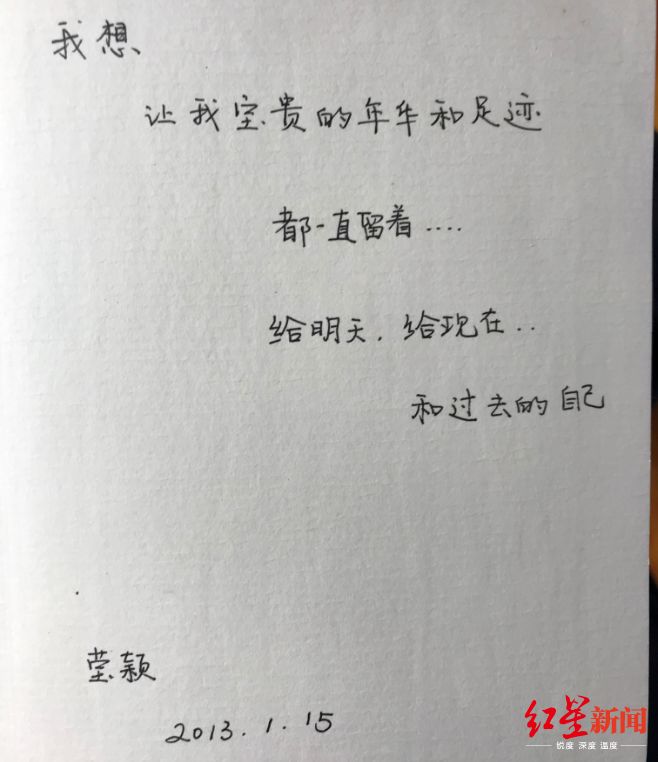 我想、
让我宝贵的年华和足迹
都一直留着....
给明天,给现在..
和过去的自己
莹颖
2013.1.15
红星新闻
锐度 深度 温度